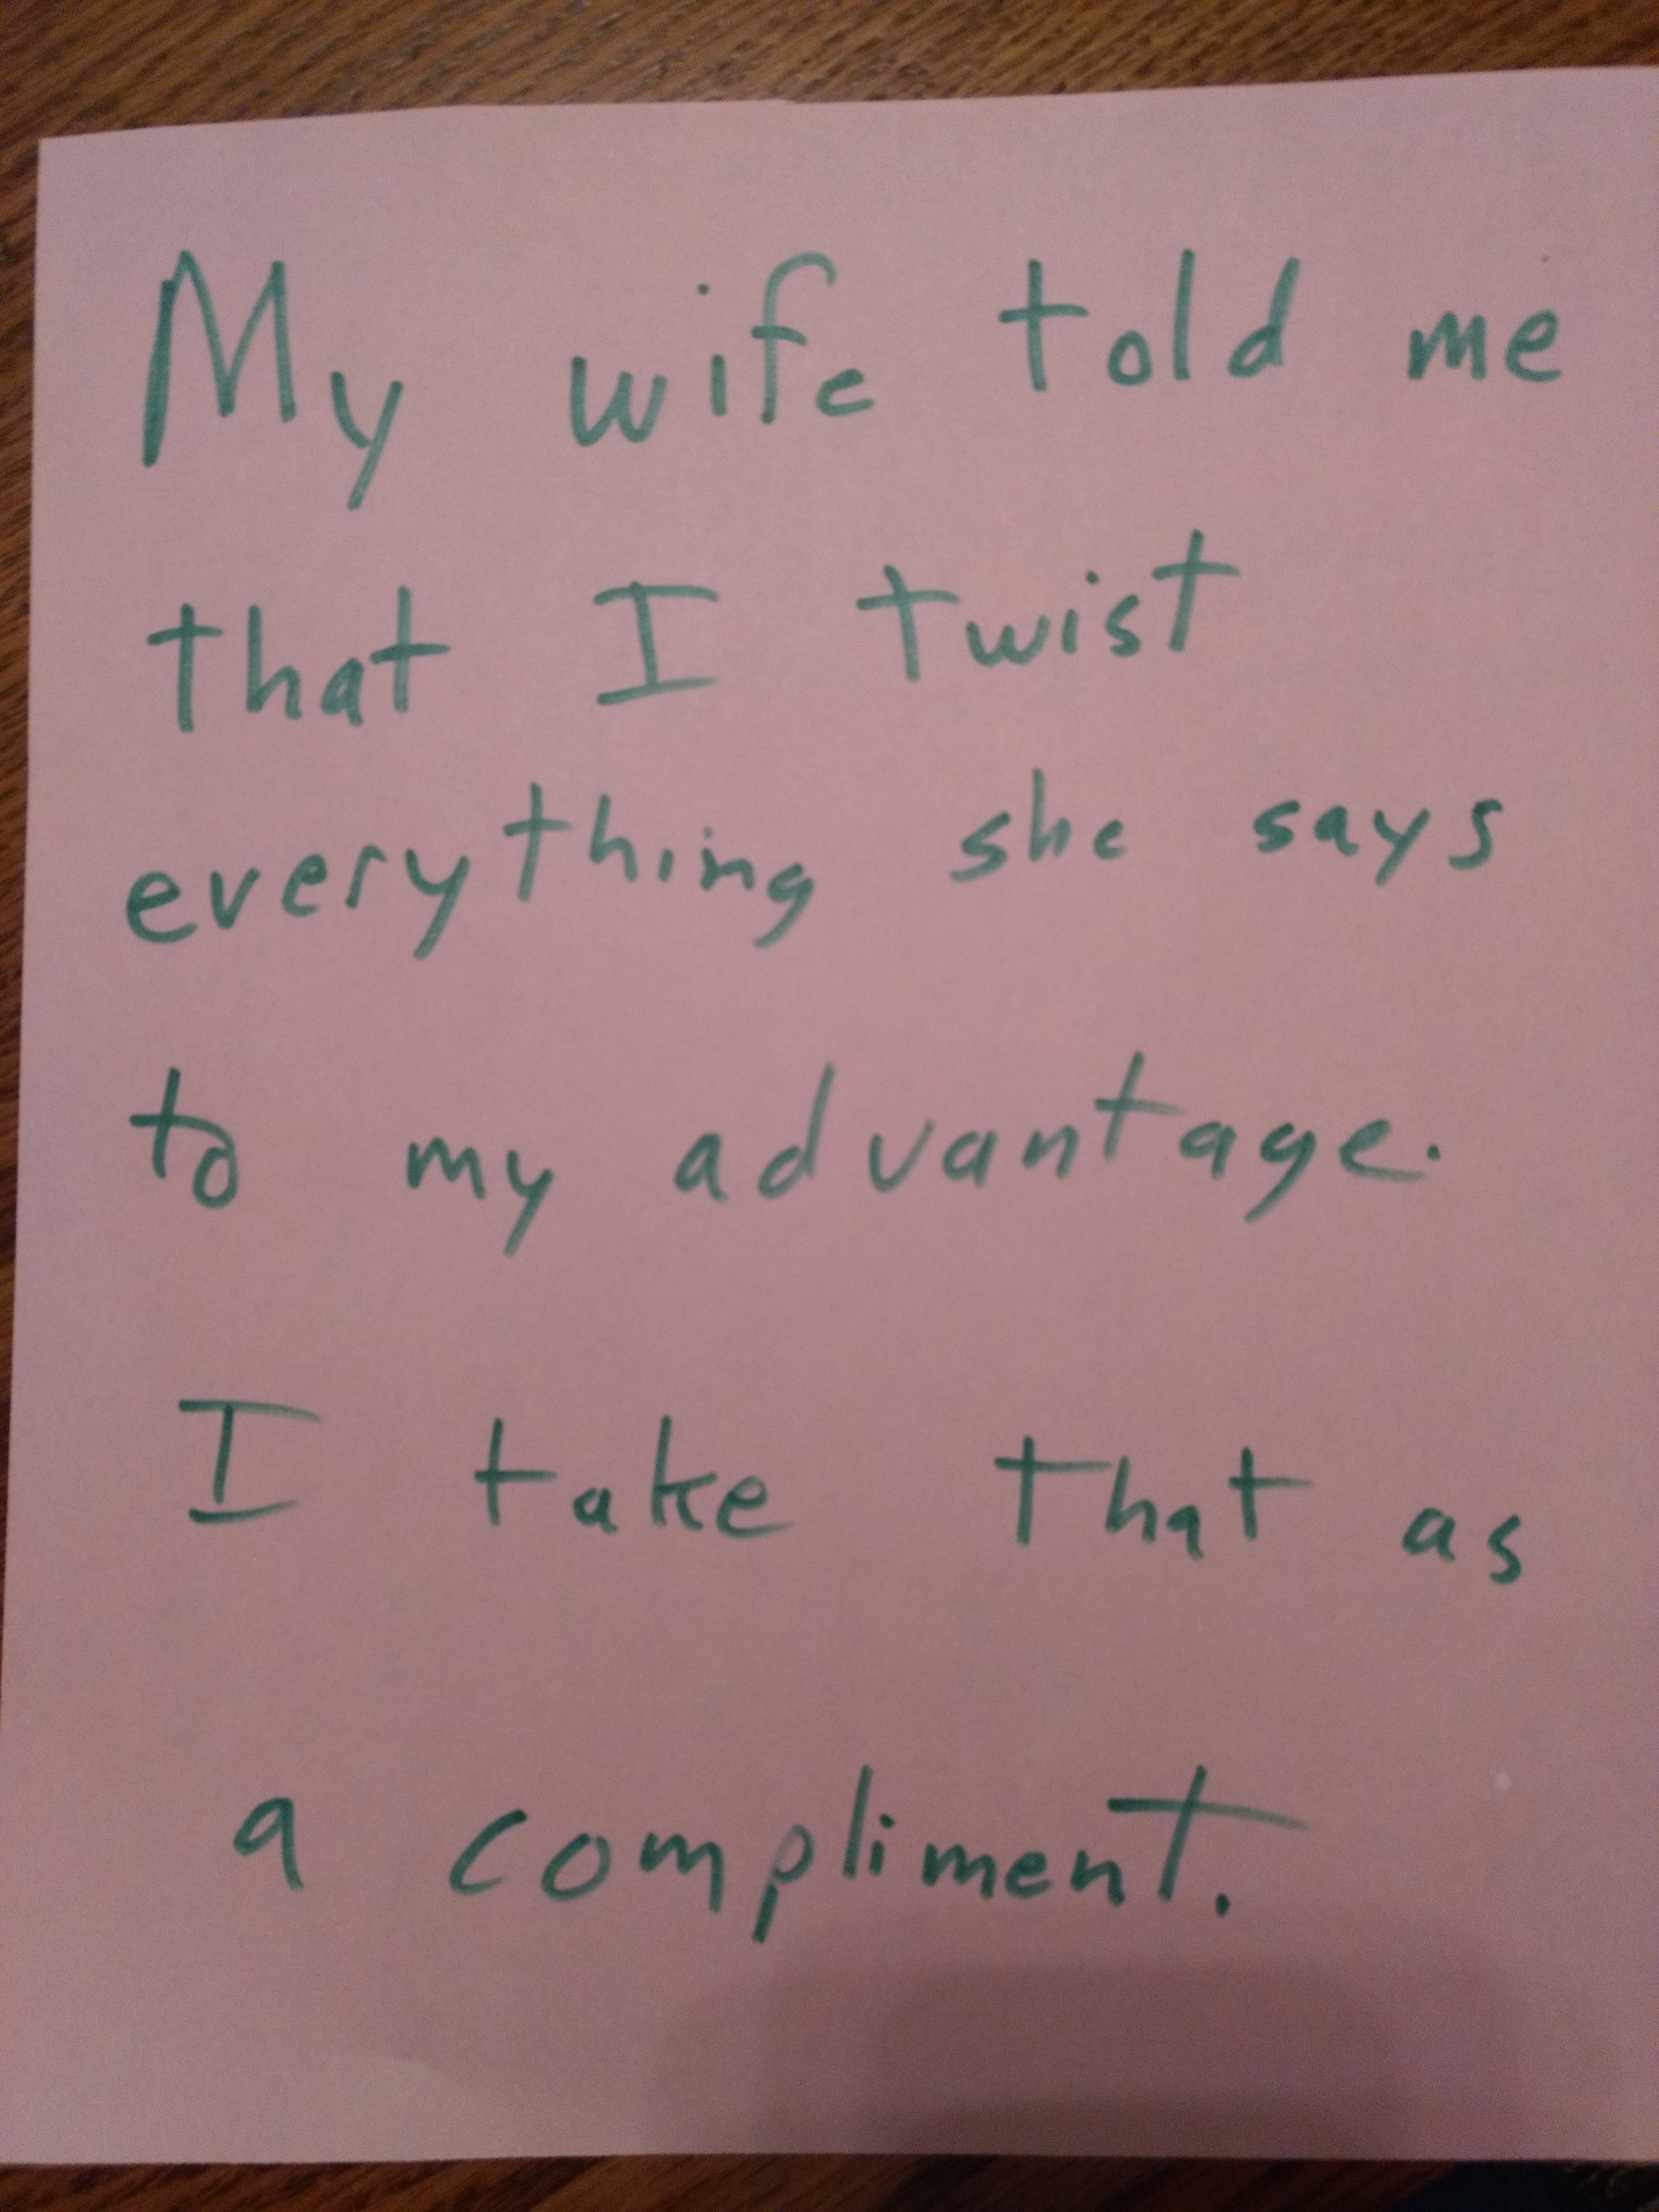 My wife told me
that I twist
everything she says
to my advantage.
I take that as
a compliment.